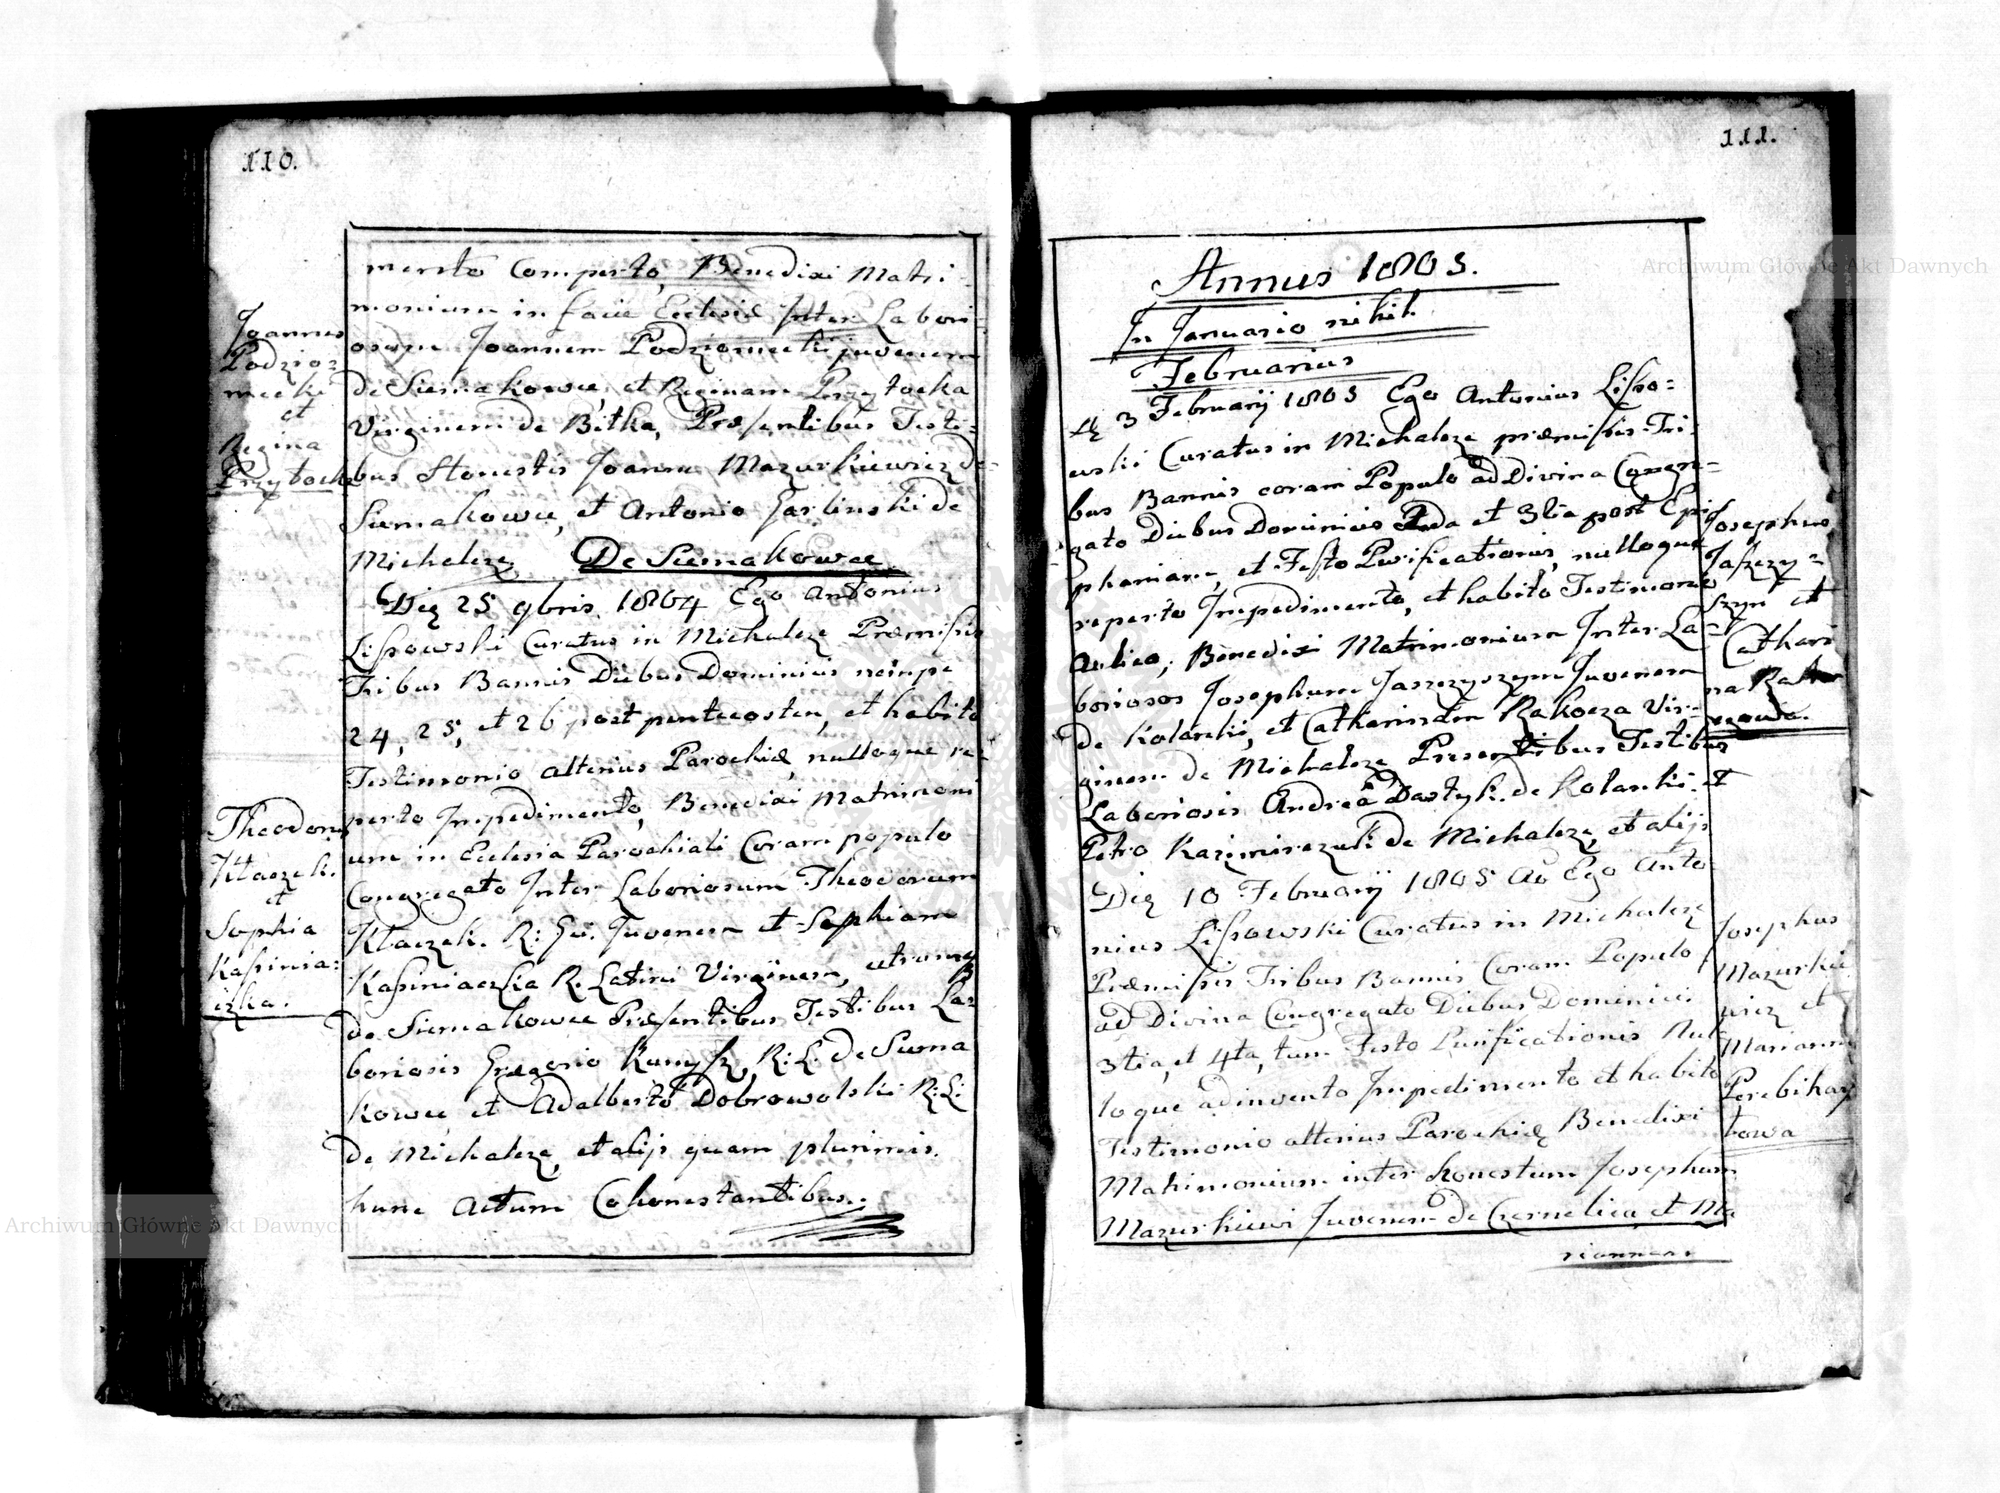 110.
mento Comperto, Benedixi Matri-
monium in facie Ecclesiæ Inter Labori-
osum Joannem Podziomecki juvenem
de Siemakowce, et Reginam Przytocka
Virginem de Bitka, Præsentibus Testi-
bus Honestis Joanne Mazurkiewicz de
Siemakowce, et Antonio Garlinski de
Michalcze De Siemakowce
Joannes
Podzio=
mecki
et
Regina
Przytocka
Die 25 9bris 1804 Ego Antonius
Lissowski Curatus in Michalcze Præmissis
Tribus Bannis Diebus Dominicis nempe
24, 25, et 26 post pentecosten, et habito
Testimonio alterius Parochiæ, nulloque re-
perto Impedimento, Benedixi Matrimoni
um in Ecclesia Parochiali Coram populo
Congregato Inter Laboriosum Theodorum
Kłaczek. R: Gr. Juvenem et Sophiam
Kasiniaczka R. Latini Virginem, utrosque
de Siemakowce Præsentibus Testibus La=
boriosis Gregorio Kunysz, R: L: de Siema
kowce et Adalberto Dobrowolski R: L:
de Michalcze, et alijs quam plurimis,
hunc Actum Cohonestantibus.
Theodorus
Kłaczek.
et
Sophia
Kasinia=
czka.
111.
Annus 1805.
In Januario nihil.
Februarius
3 Februarij 1805 Ego Antonius Lisso=
wski Curatus in Michalcze præmissis Tri-
bus Bannis coram Populo ad Divina Congre=
gato Diebus Dominicis 2da et 3tia post Epi
phaniam, et Festo Purificationis, nulloque
reperto Impedimento, et habito Testimonio
Aulico, Benedixi Matrimonium Inter La
boriosos Josephum Jaszczyszyn Juvenem
de Kolanki, et Catharinam Rakocza Vir-
ginem de Michalcze Presentibus Testibus
Laboriosis Andrea Dastyk. de Kolanki. et
Petro Kazimirczuk de Michalcze, et alijs
Josephus
Jaszczy=
szyn et
Cathari
na
Die 10 Februarij 1805 Ao Ego Anto
nius Lissowski Curatus in Michalcze
Præmissis Tribus Bannis Coram Populo
ad Divina Congregato Diebus Dominicis
3tia, et 4ta, tum Festo Purificationis Nul
loque adinvento Impedimento et habito
Testimonio alterius Parochiæ Benedixi
Matrimonium inter honestum Josephum
Mazurkiewi Juvenem de Czernelica, et Ma
riannam
Josephus
Mazurkie
wicz et
Marianna
Perebihay
towa
Archiwum Główne Akt Dawnych
Archiwum Główne Akt Dawnych